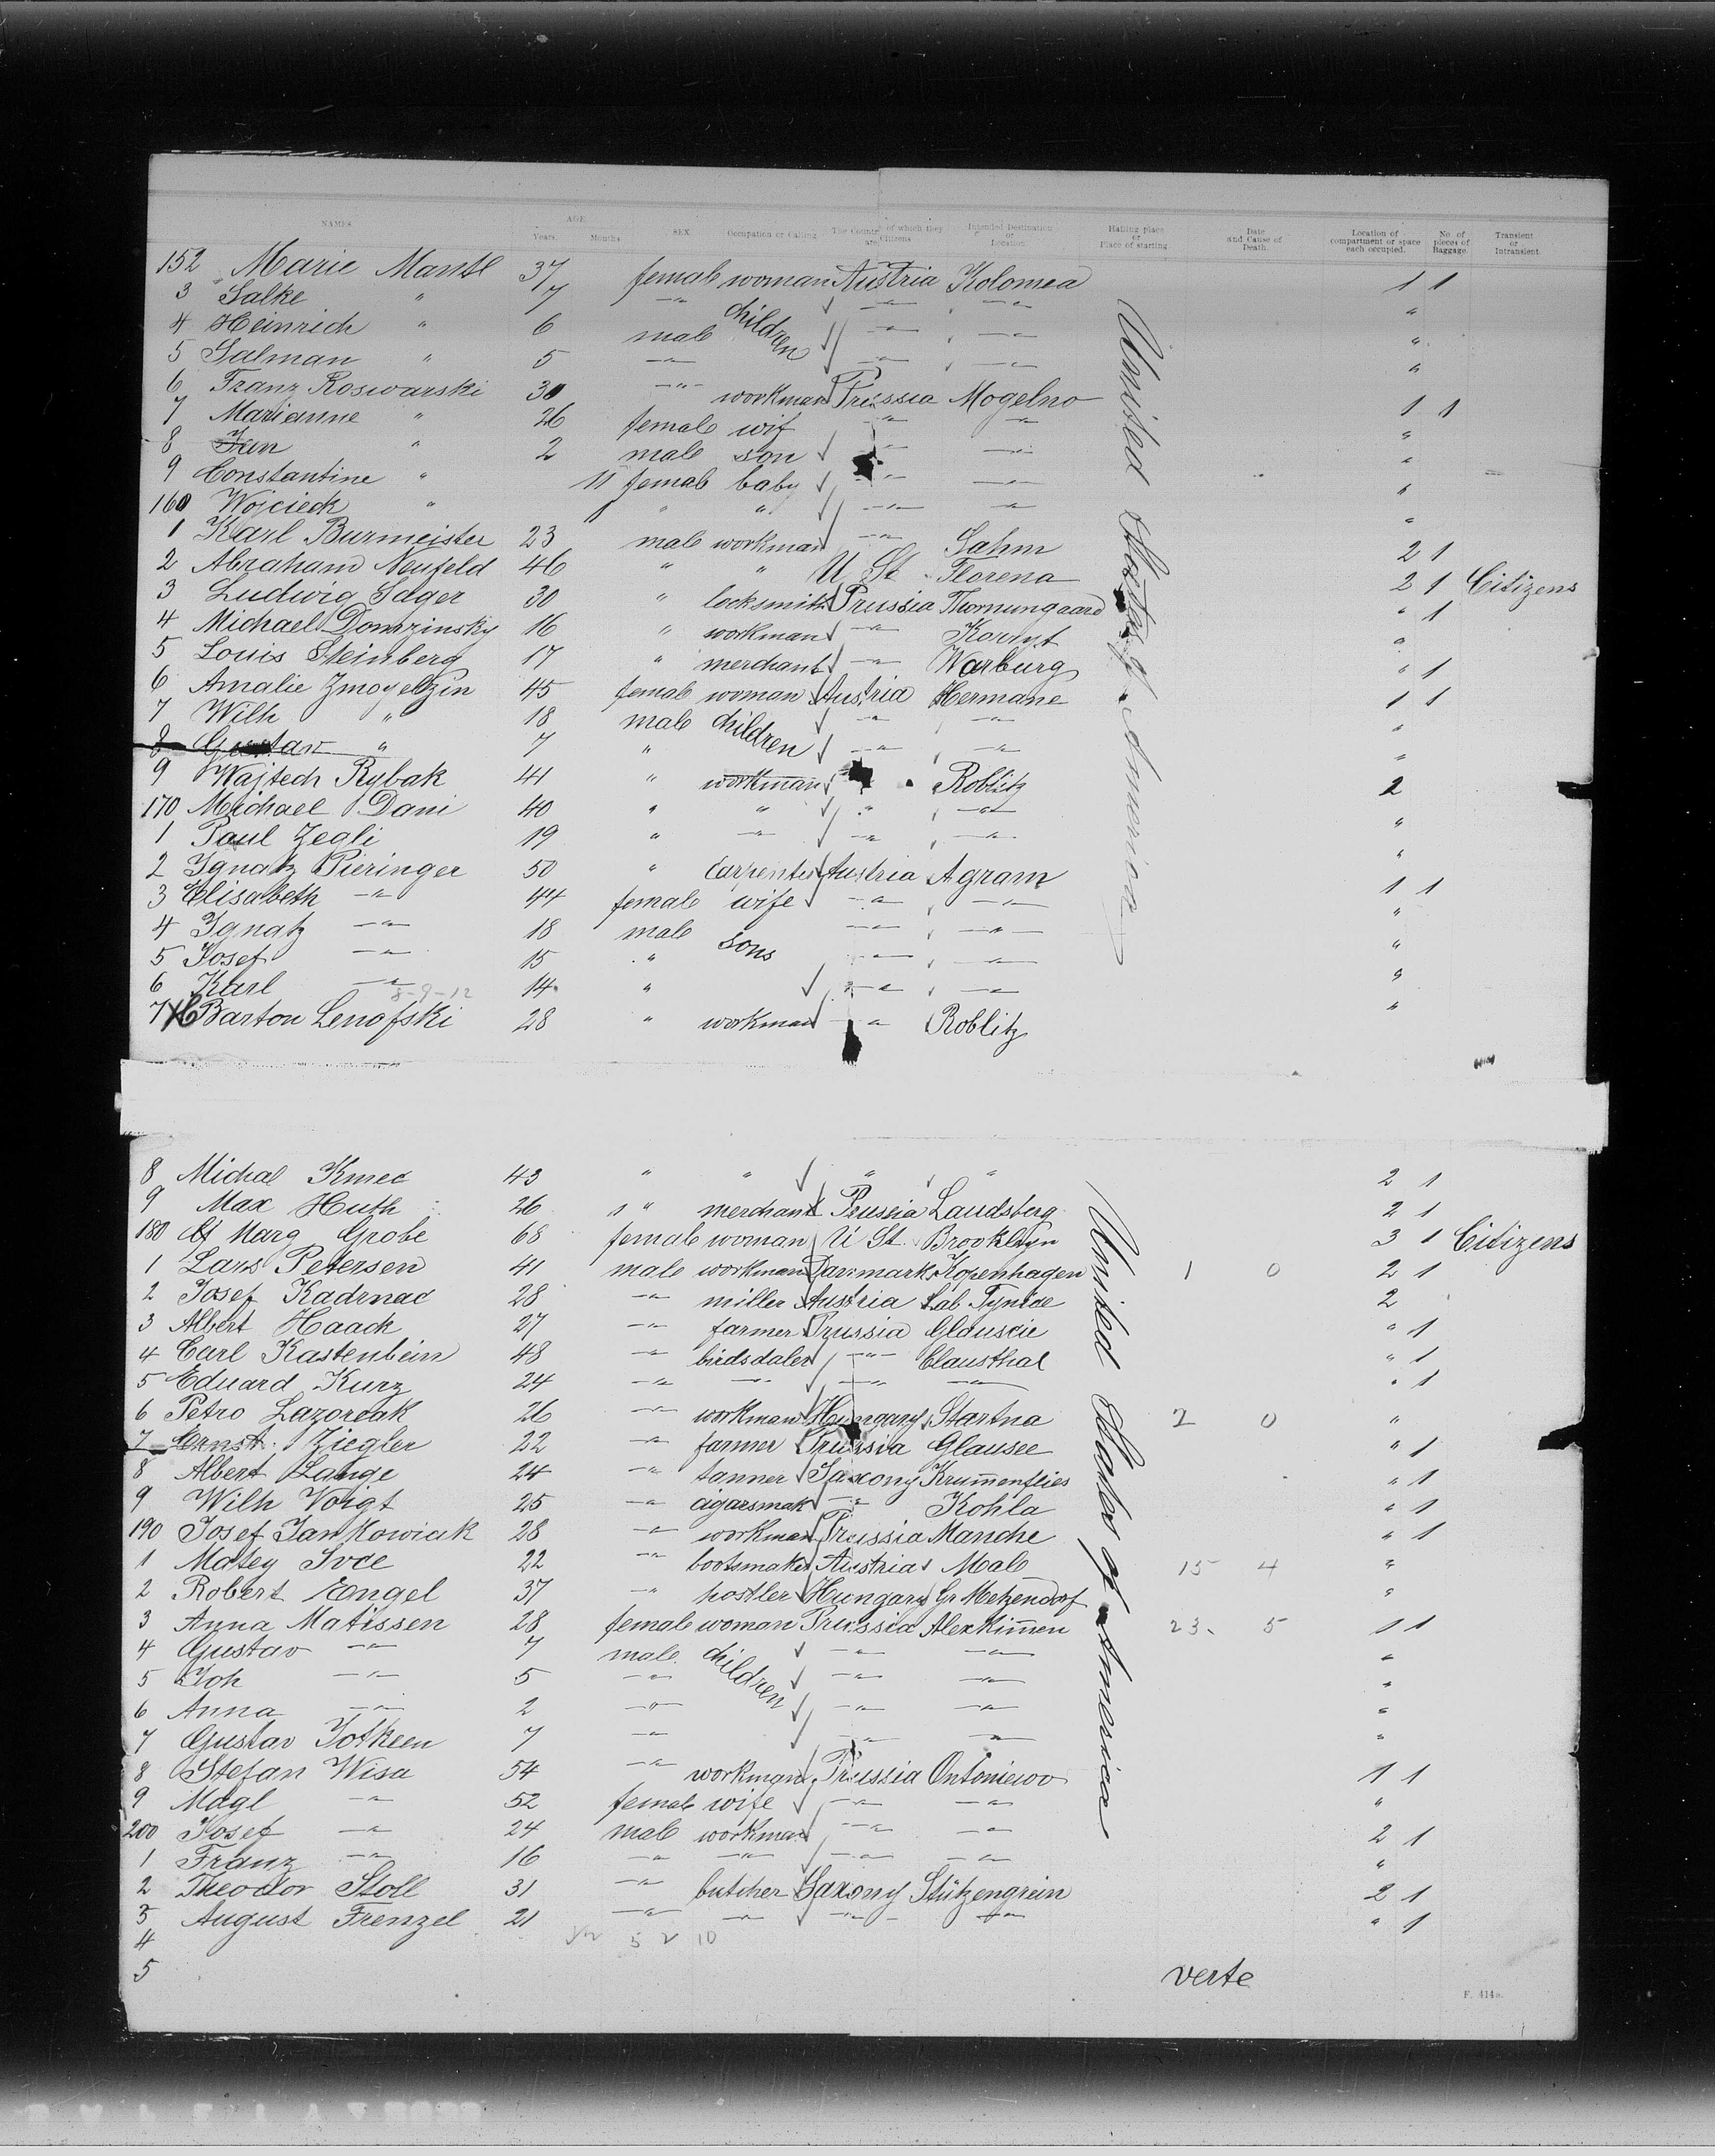 NAMES AGE Years. Months SEX Occupation or Calling The Country of which they are Citizens Intended Destination or Location Halling place or Place of starting Date and Cause of Death. Location of compartment or space each occupied. No. of pieces of Baggage. Transient or Intransient.
152 Marie Mantl 37 female woman Austria Kolomea 1 1
3 Salke " 7 —"— children —"— —"— "
4 Heinrich " 6 male —"— —"— "
5 Salman " 5 —"— —"— —"— "
6 Franz Roswarski 30 —"— workman Prussia Mogelno 1 1
7 Marianne " 26 female wif —"— —"— "
8 Jan " 2 male son —"— —"— "
9 Constantine " 11 female baby —"— —"— "
160 Wojcieck " " " —"— —"— "
1 Karl Burmeister 23 male workman —"— Sahm 2 1
2 Abraham Neufeld 46 " " U St Florena 2 1 Citizens
3 Ludwig Sager 30 " locksmith Prussia Thornungaard " 1
4 Michael Domrzinsky 16 " workman —"— "
5 Louis Steinberg 17 " merchant —"— Warburg " 1
6 Amalie 45 female woman Austria Hermane 1 1
7 Wilh " 18 male children —"— —"— "
8 Gustav " 7 " —"— —"— "
9 Wajtech Rybak 41 " workman Roblitz 2
170 Michael Dani 40 " " " —"— "
1 Paul Zegli 19 " —"— —"— —"— "
2 Ignatz Pieringer 50 " Carpenter Austria Agram 1 1
3 Elisabeth —"— 44 female wife —"— —"— "
4 Ignatz —"— 18 male sons —"— —"— "
5 Josef —"— 15 " —"— —"— "
6 Karl —"— 14 " —"— —"— "
8-9-12
7 Barton Lenofski 28 " workman —"— Roblitz
United States of America
8 Michal Kmec 43 " " " " 2 1
9 Max Huth 26 " merchant Prussia Landsberg 2 1
180 Marg Grobe 68 female woman U St. Brooklyn 3 1 Citizens
1 Lars Petersen 41 male workman Danmark Kopenhagen 1 0 2 1
2 Josef Kadrnac 28 —"— miller Austria Lab Tynice 2
3 Albert Haack 27 —"— farmer Prussia " 1
4 Carl Kastenbein 48 —"— birdsdaler —"— Clausthal " 1
5 Eduard Kurz 24 —"— —"— —"— —"— " 1
6 Petro Lazoreak 26 —"— workman Hungary Startna 2 0 "
7 Ernst Ziegler 22 —"— farmer Prussia Glausee " 1
8 Albert Lange 24 —"— tanner Saxony Krummenflies " 1
9 Wilh Voigt 25 —"— cigarsmak —"— Kohla " 1
190 Josef Jankowiak 28 —"— workman Prussia Manche " 1
1 Matey Ivce 22 —"— bootsmaker Austria Male 15 4 "
2 Robert Engel 37 —"— hostler Hungary Gr Metzendorf "
3 Anna Matissen 28 female woman Prussia Alexkimmen 23. 5 1 1
4 Gustav —"— 7 male children —"— —"— "
5 Joh —"— 5 —"— —"— —"— "
6 Anna —"— 2 —"— —"— —"— "
7 Gustav Jotkeen 7 —"— —"— —"— "
8 Stefan Wisa 54 —"— workman Prussia Ontoniewo 1 1
9 Magl —"— 52 female wife —"— —"— "
200 Josef —"— 24 male workman —"— —"— 2 1
1 Franz —"— 16 —"— —"— —"— —"— "
2 Theodor Stoll 31 —"— butcher Saxony Stützengrün 2 1
3 August Frenzel 21 —"— —"— —"— —"— " 1
4 5 2 10
5
United States of America
verte
F. 414a.